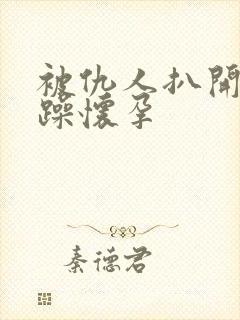 被仇人扒開
躁懷孕
秦德君